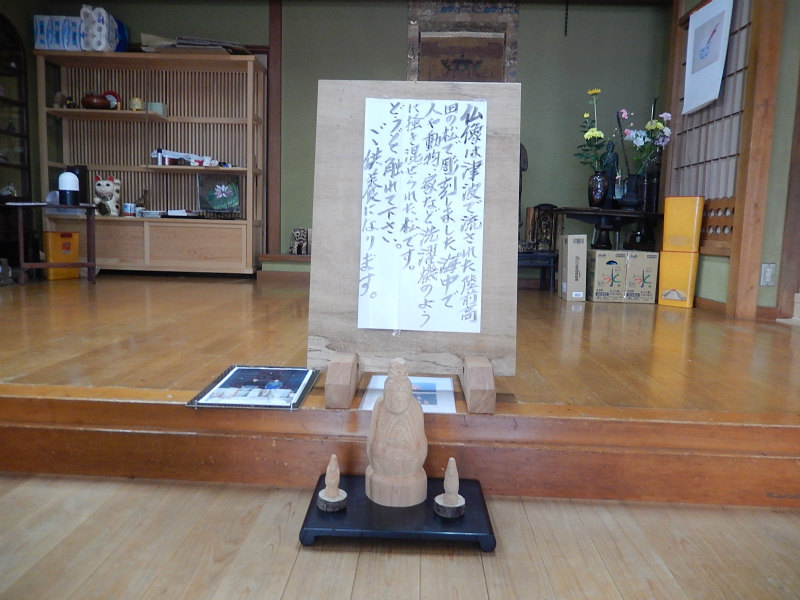 仏像は津波で流された陸前高
田の松で彫刻しました海中で
人や動物、家など洗濯機のよう
に掻き混ぜられた松です。
どうぞ、触れて下さい。
ご供養になります。